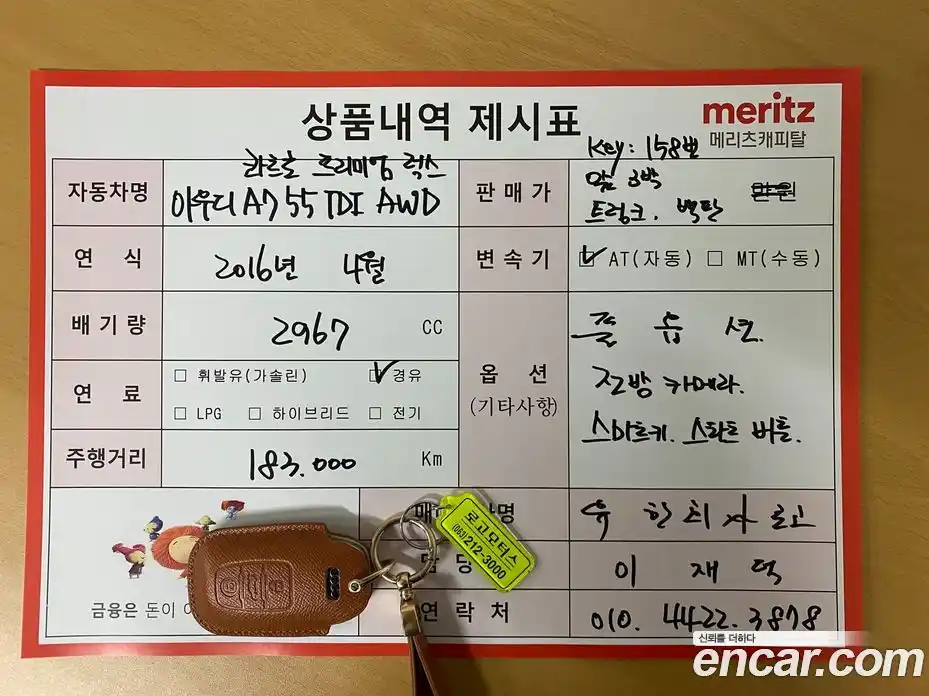 상품내역 제시표
meritz
메리츠캐피탈
Key: 158번
자동차명
콰트로 프리미엄 럭스
아우디 A7 55 TDI AWD
판매가
앞 3박
트렁크. 백판
만원
연 식
2016년 4월
변속기
AT(자동) MT(수동)
배기량
2967 CC
옵 션
(기타사항)
풀 옵 션.
전방 카메라.
스마트키. 스타트 버튼.
연 료
휘발유(가솔린) 경유
LPG 하이브리드 전기
주행거리
183.000 Km
매
명
당
이 재 덕
연락처
010. 4422. 3878
로고모터스
212-3000
금융은 돈이
신뢰를 더하다
encar.com